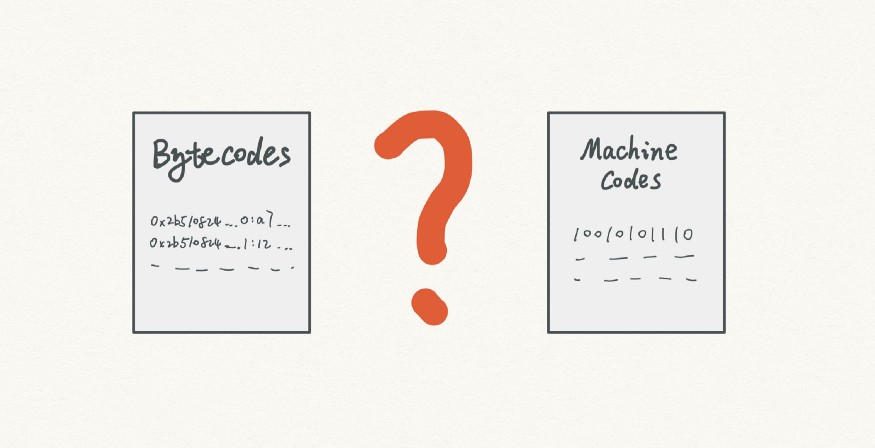 Bytecodes
0x2b510824 ... 0:a7 ...
0x2b510824 ... 1:12 ...
?
Machine
Codes
10010101110